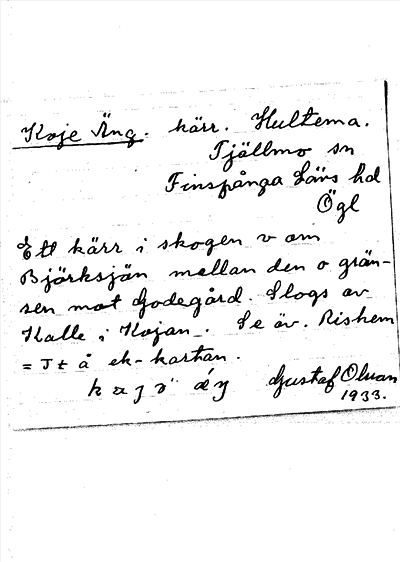 Koje Äng. kärr. Hultema.
Tjällmo sn
Finspånga Läns hd
Ögl
Ett kärr i skogen v om
Björksjön mellan den o grän-
sen mot Godegård. Slogs av
Kalle i Kojan. Se äv. Riskem
= Jt å ek-kartan.
Gustaf Olsson
1933.